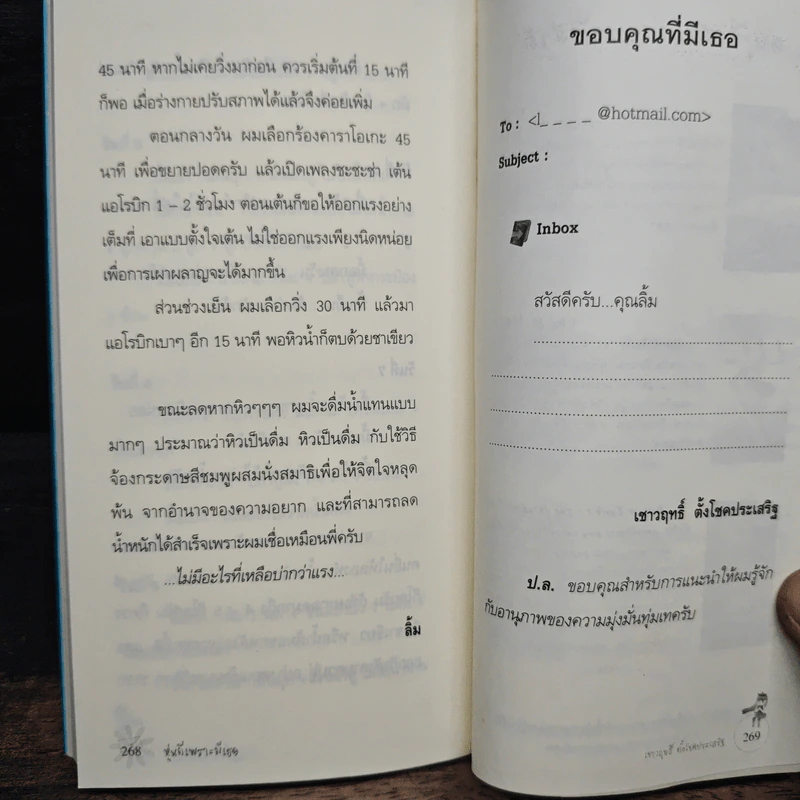 45 นาที หากไม่เคยวิ่งมาก่อน ควรเริ่มต้นที่ 15 นาที
ก็พอ เมื่อร่างกายปรับสภาพได้แล้วจึงค่อยเพิ่ม
ตอนกลางวัน ผมเลือกร้องคาราโอเกะ 45
นาที เพื่อขยายปอดครับ แล้วเปิดเพลงชะชะช่า เต้น
แอโรบิก 1 – 2 ชั่วโมง ตอนเต้นก็ขอให้ออกแรงอย่าง
เต็มที่ เอาแบบตั้งใจเต้น ไม่ใช่ออกแรงเพียงนิดหน่อย
เพื่อการเผาผลาญจะได้มากขึ้น
ส่วนช่วงเย็น ผมเลือกวิ่ง 30 นาที แล้วมา
แอโรบิกเบาๆ อีก 15 นาที พอหิวน้ำก็ตบด้วยชาเขียว
ขณะลดหากหิวๆๆๆ ผมจะดื่มน้ำแทนแบบ
มากๆ ประมาณว่าหิวเป็นดื่ม หิวเป็นดื่ม กับใช้วิธี
จ้องกระดาษสีชมพูผสมนั่งสมาธิเพื่อให้จิตใจหลุด
พ้น จากอำนาจของความอยาก และที่สามารถลด
น้ำหนักได้สำเร็จเพราะผมเชื่อเหมือนพี่ครับ
...ไม่มีอะไรที่เหลือบ่ากว่าแรง...
ลิ้ม
268 หุ่นดีเพราะมีเธอ
ขอบคุณที่มีเธอ
To : <l_ _ _ _ @hotmail.com>
Subject :
Inbox
สวัสดีครับ...คุณลิ้ม
เชาวฤทธิ์ ตั้งโชคประเสริฐ
ป.ล. ขอบคุณสำหรับการแนะนำให้ผมรู้จัก
กับอานุภาพของความมุ่งมั่นทุ่มเทครับ
เชาวฤทธิ์ ตั้งโชคประเสริฐ 269